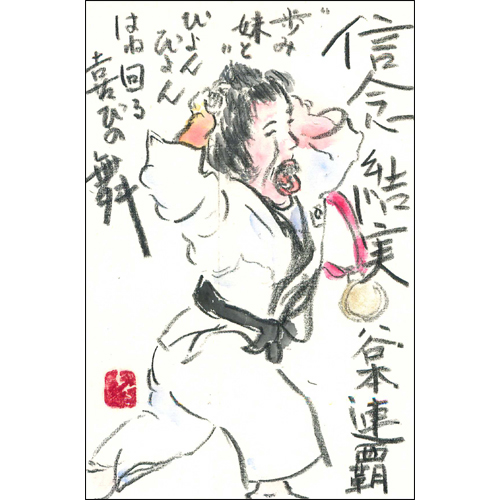 信念 結実
谷本連覇
〝歩み
妹と〟
ぴょん
ぴょん
はね回る
喜びの
舞